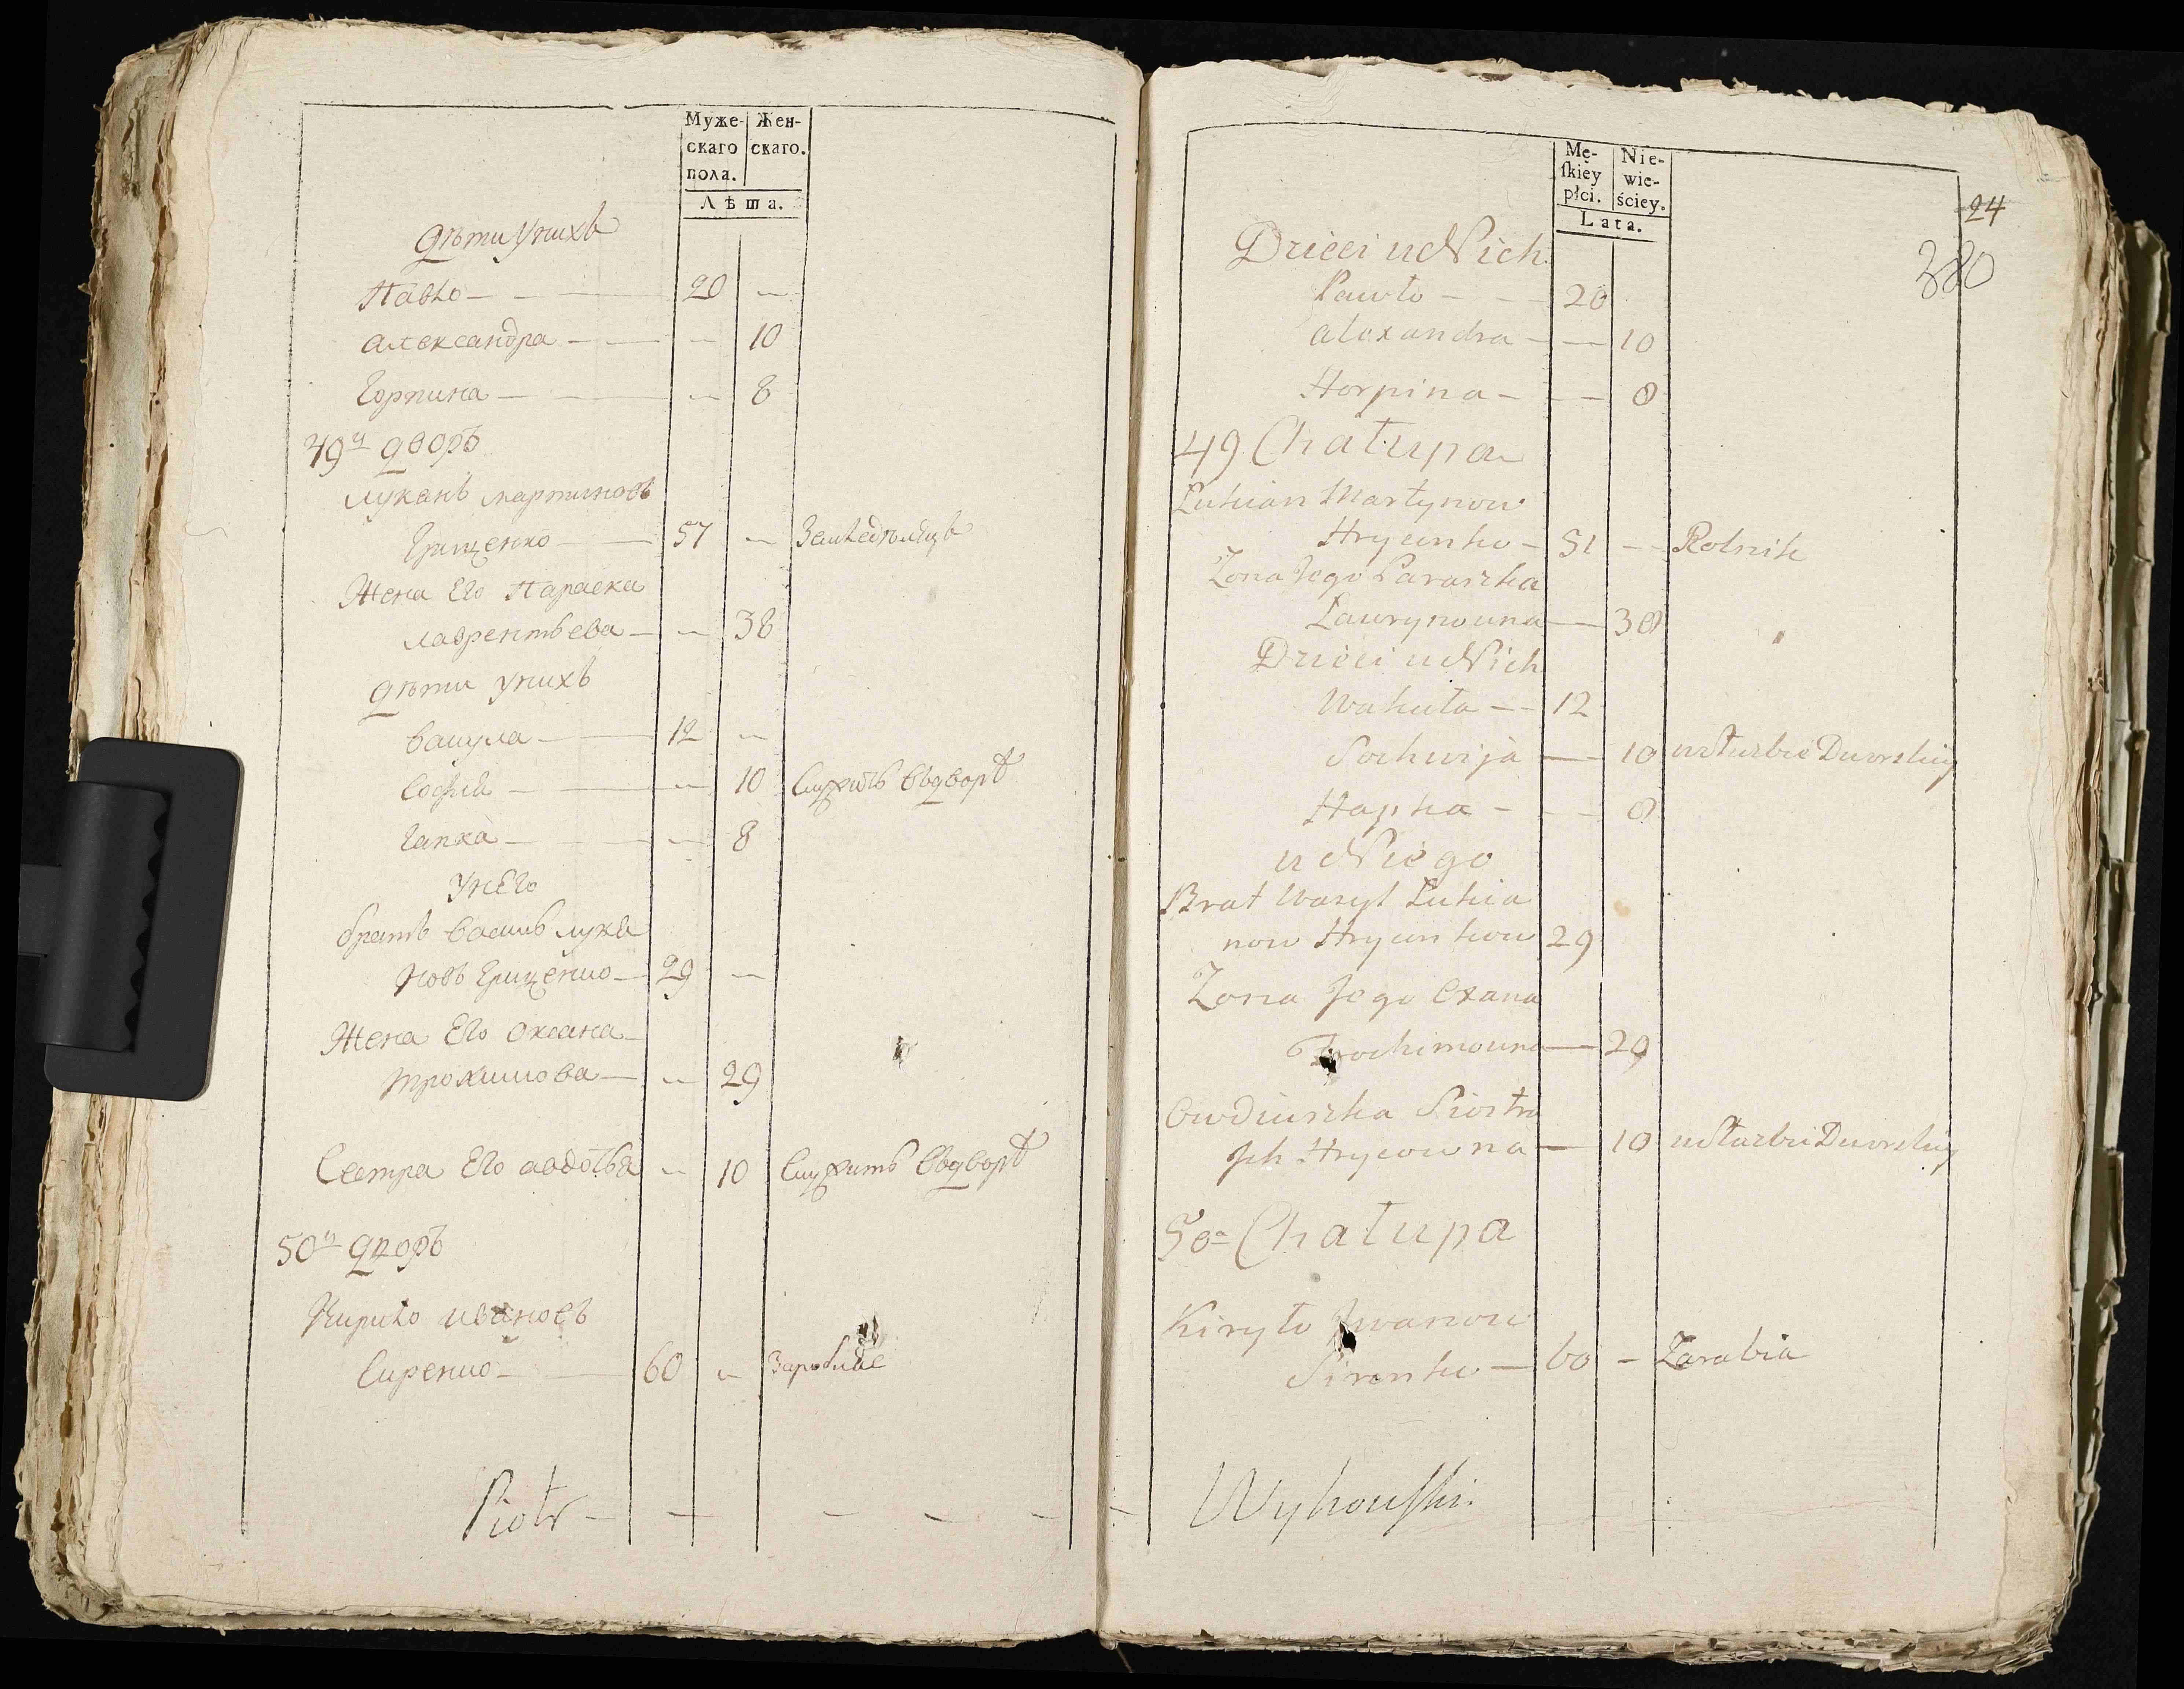 Муже-
скаго
пола.
Жен-
скаго.
Лѣта.
дѣти Унихъ
Павло — 20 —
александра — — 10
Горпина — — 8
49й дворъ
луканъ мартиновъ
Грищенко — 57 — Землѣделецъ
Жена Его Параска
лаврентьева — — 38
дѣти унихъ
вакула — 12 —
София — — 10 Служитъ Вьдворѣ
Гапка — — 8
Унего
братъ василь лукя
новъ Грищенко — 29 —
Жена Его Оксана
трохимова — — 29
Сестра Его авдотья — 10 Служитъ Вьдворѣ
50й дворъ
Кирило ивановъ
Сиренко — 60 —
Piotr — — — — —
Mę-
skiey
płci.
Nie-
wie-
ściey.
Lata.
24
380
Dzieci u Nich
Pawło — — 20
alexandra — — 10
Horpina — — — 8
49 Chałupa
Lukian Martynow
Hrycenko — 51 — Rolnik
Zona Jego Paraszka
Lawrynowna — 38
Dzieci u Nich
Wakuła — — 12
Sochwija — 10 w słuzbie Dworskiy
Hapka — — — 8
u Niego
Brat Wasyl Lukia
now Hrycenkow 29
Zona Jego Oxana
Trochimowna — 29
Owdiuszka Siostra
Jch Hrycowna — 10 w słuzbie Dworskiy
50a Chałupa
Kiryło Jwanow
Sirenko — 60 — Zarabia
Wyhowski.